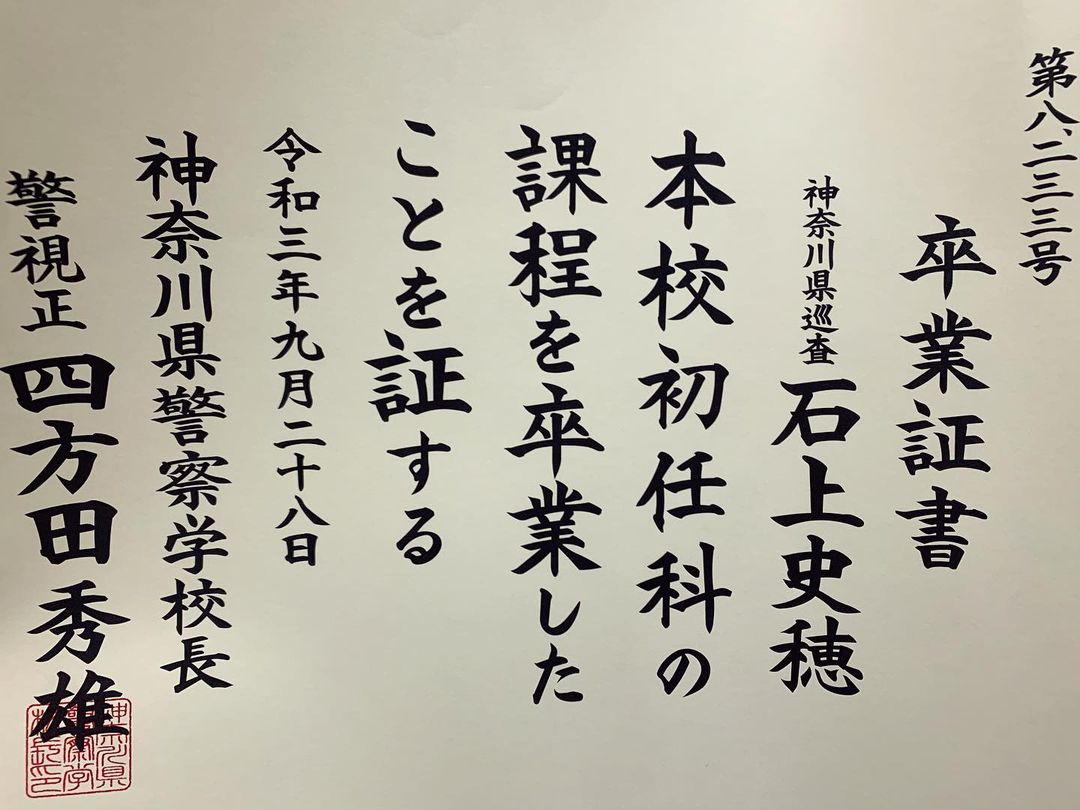 第八、二三三号
卒業証書
神奈川県巡査 石上史穂
本校初任科の
課程を卒業した
ことを証する
令和三年九月二十八日
神奈川県警察学校長
警視正 四方田秀雄
神奈川県
警察学
校長印